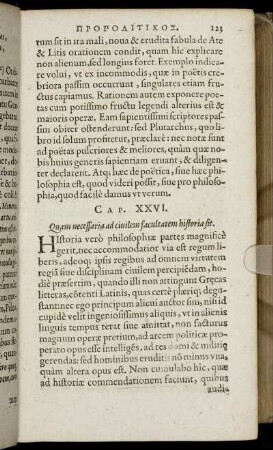 ΠΡΟΡΟΛΙΤΙΚΟΣ. 123
rum sit in ira mali, noua & erudita fabula de Ate
& Litis orationem condit, quam hic explicare
non alienum, sed longius foret. Exemplo indica-
re volui, vt ex incommodis, quæ in poëtis cre-
briora passim occurrunt, singulares etiam fru-
ctus capiamus. Rationem autem exponere poë-
tas cum potissimo fructu legendi alterius est &
maioris operæ. Eam sapientissimi scriptores pas-
sim obiter ostenderunt: sed Plutarchus, quo li-
bro id solum profitetur, præclarè: nec notæ sunt
ad poëtas pulcriores & meliores, quàm quæ no-
bis huius generis sapientiam eruant, & diligen-
ter declarent. Atq; hæc de poëtica, siue hæc phi-
losophia est, quod videri possit, siue pro philoso-
phia, quod facilè damus vt verum.
CAP. XXVI.
Quam necessaria ad ciuilem facultatem historia sit.
HIstoria verò philosophiæ partes magnificè
gerit, nec accommodatior vlla est regum li-
beris, adeoq; ipsis regibus ad omnem virtutem
regiã siue disciplinam ciuilem percipiẽdam, ho-
die præsertim, quando illi non attingunt Græcas
litteras, cõtenti Latinis, quas certè plærіq; degu-
stant: nec ego principum alicui auctor sim, nisi si
cupidè velit ingeniosissimus aliquis, vt in alienis
linguis tempus terat siue
magnum operæ pretium, ad artem politicæ pro-
perato opus esse intelligẽs, ad res domi & militię
gerendas: sed hominibus eruditis nõ minus vna,
quàm altera opus est. Non cumulabo hîc, quæ
ad historiæ commendationem faciunt, quibus
audi-